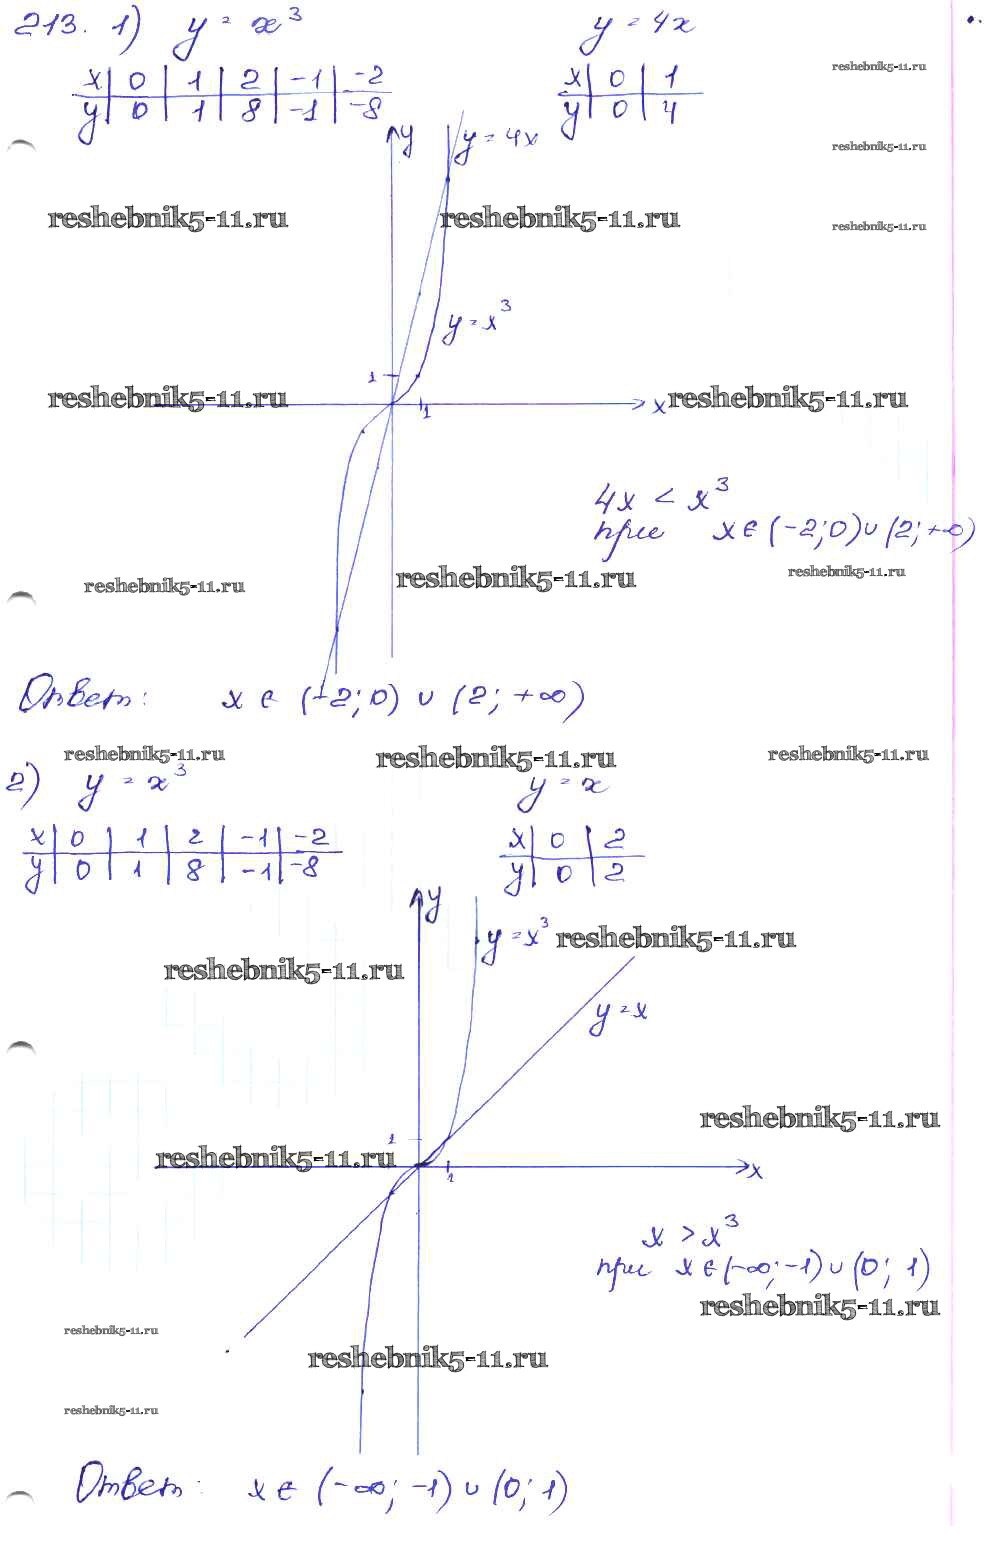 213. 1) y = x³ y = 4x
x 0 1 2 -1 -2 x 0 1
y 0 1 8 -1 -8 y 0 4
reshebnik5-11.ru
y y = 4x
reshebnik5-11.ru
reshebnik5-11.ru reshebnik5-11.ru reshebnik5-11.ru
y = x³
1
reshebnik5-11.ru 1 x reshebnik5-11.ru
4x < x³
при x ∈ (-2; 0) ∪ (2; +∞)
reshebnik5-11.ru reshebnik5-11.ru reshebnik5-11.ru
Ответ: x ∈ (-2; 0) ∪ (2; +∞)
reshebnik5-11.ru reshebnik5-11.ru reshebnik5-11.ru
2) y = x³ y = x
x 0 1 2 -1 -2 x 0 2
y 0 1 8 -1 -8 y 0 2
y
y = x³ reshebnik5-11.ru
reshebnik5-11.ru
y = x
reshebnik5-11.ru
1
reshebnik5-11.ru 1 x
x > x³
при x ∈ (-∞; -1) ∪ (0; 1)
reshebnik5-11.ru
reshebnik5-11.ru
reshebnik5-11.ru
reshebnik5-11.ru
Ответ: x ∈ (-∞; -1) ∪ (0; 1)